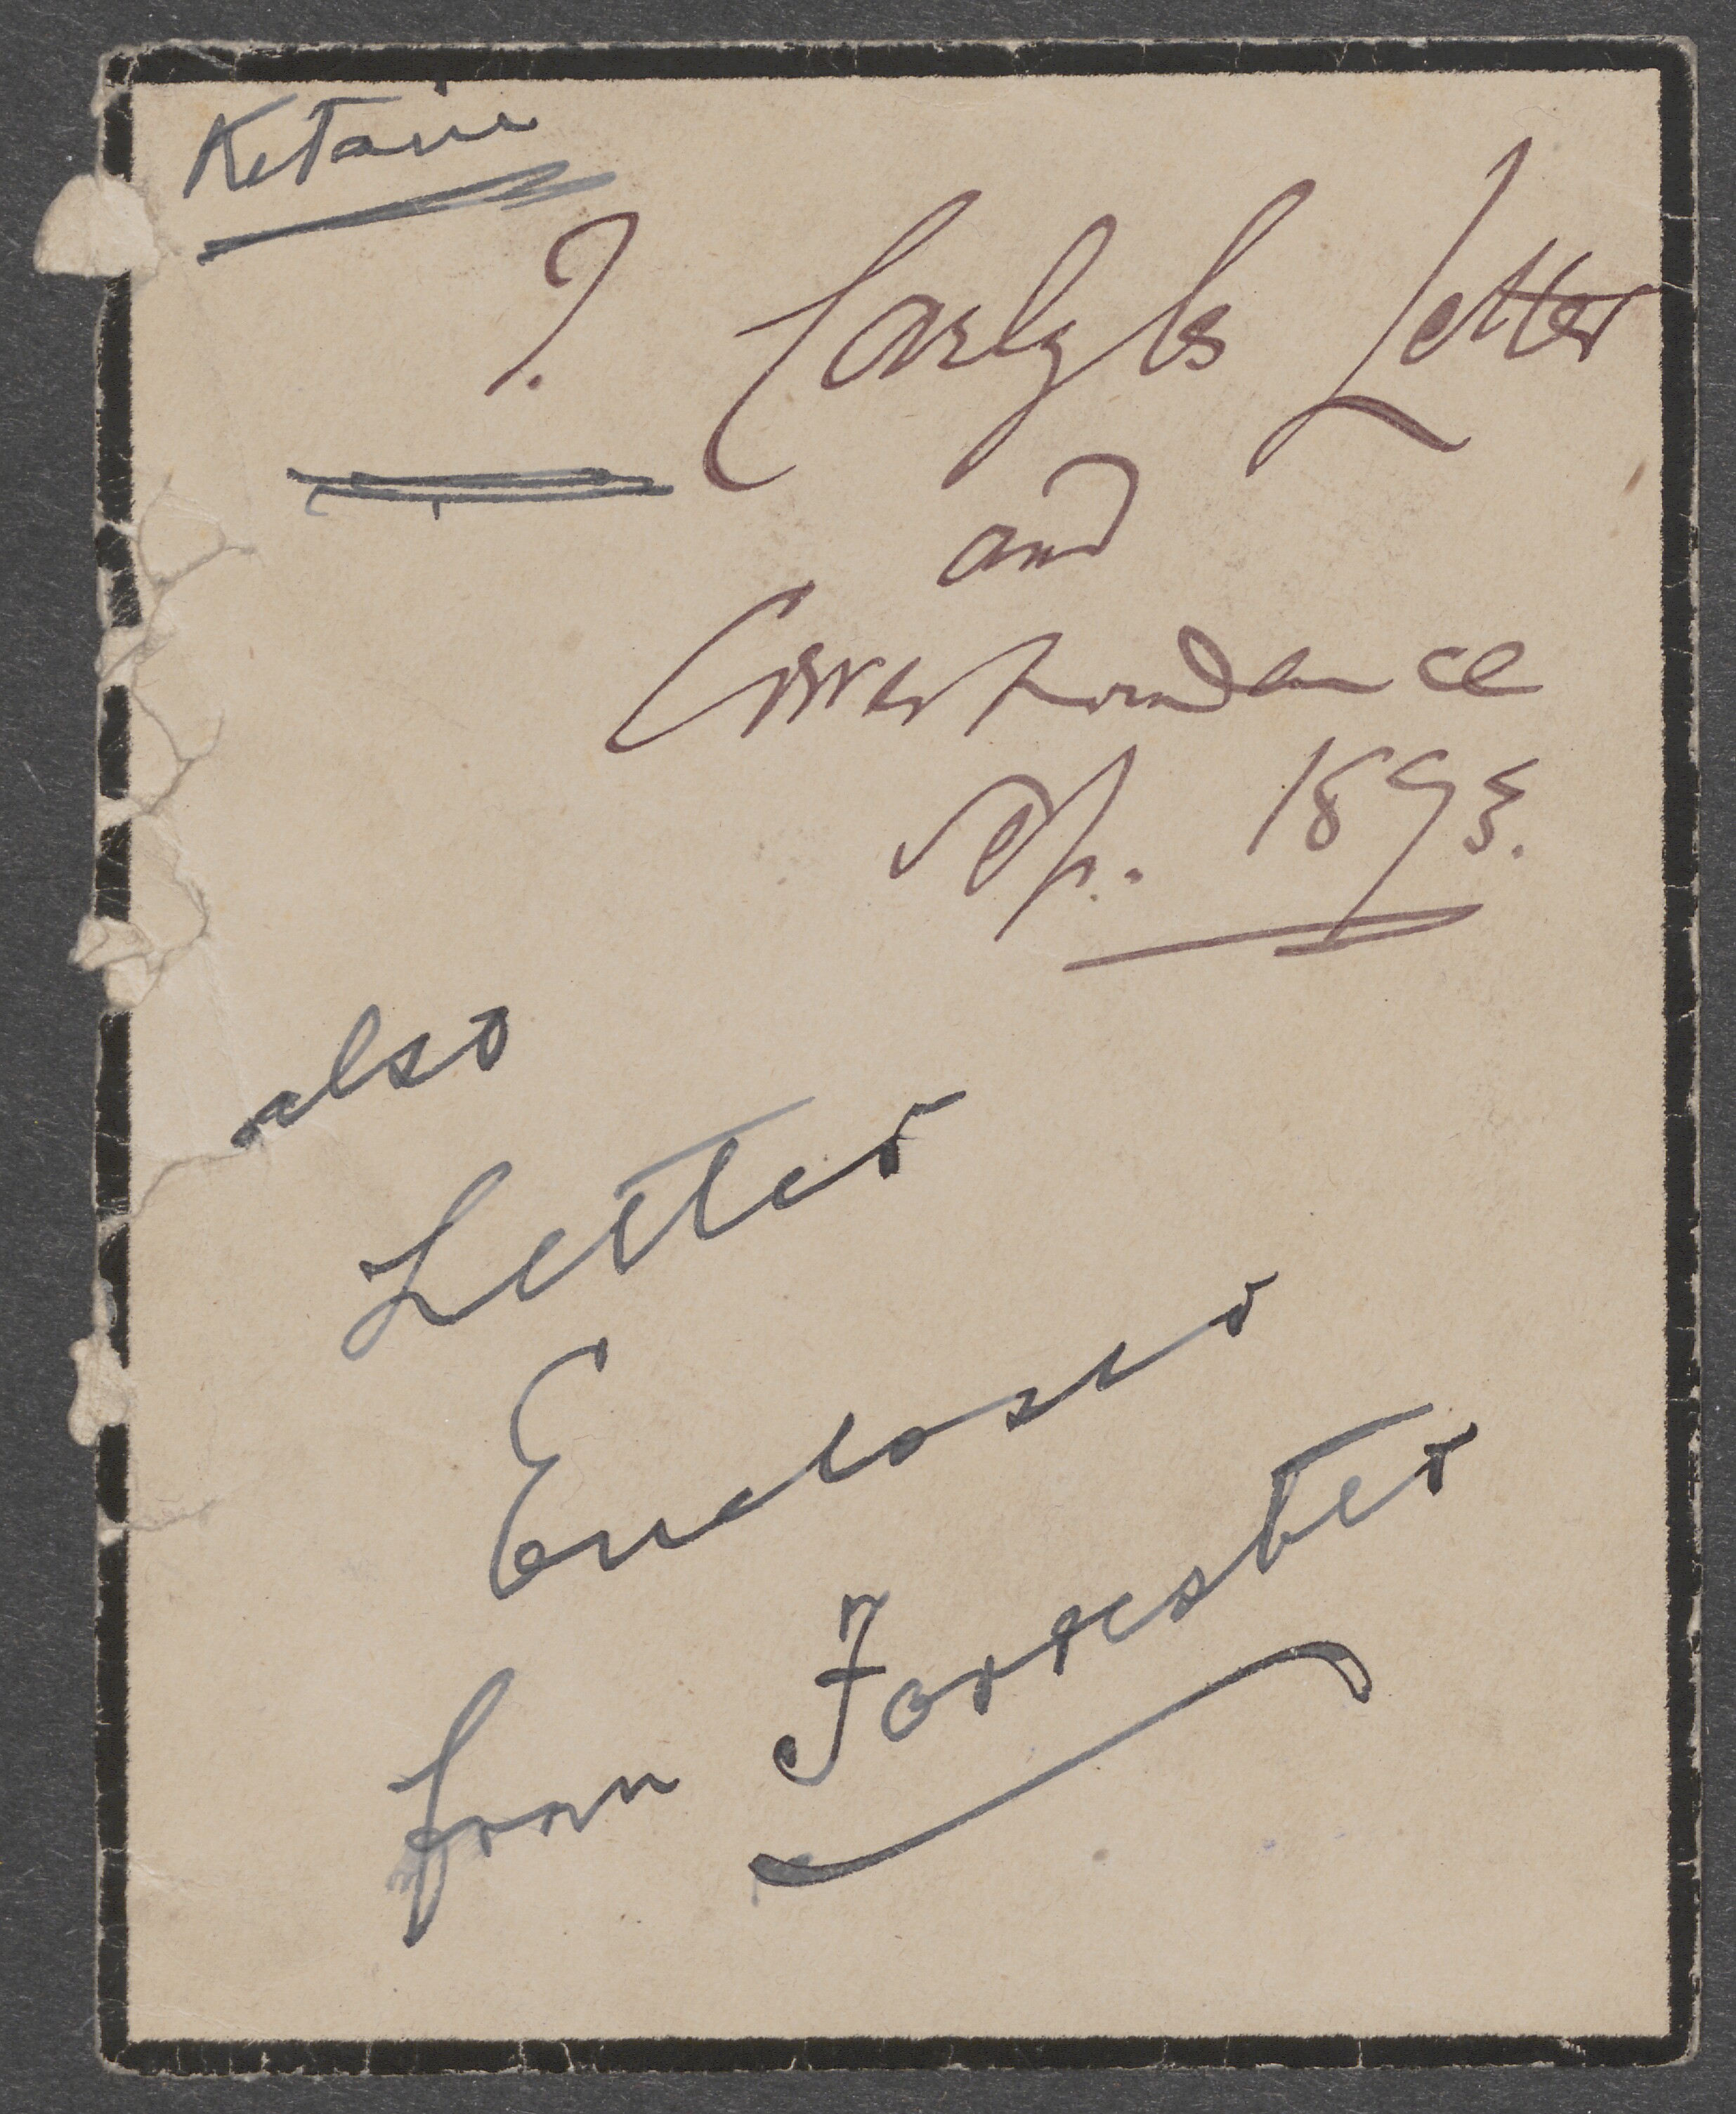 Retain
? Carlyles Letter
and
Correspondence
Sep. 1893.
also
Letter
Encloser
from Forrester